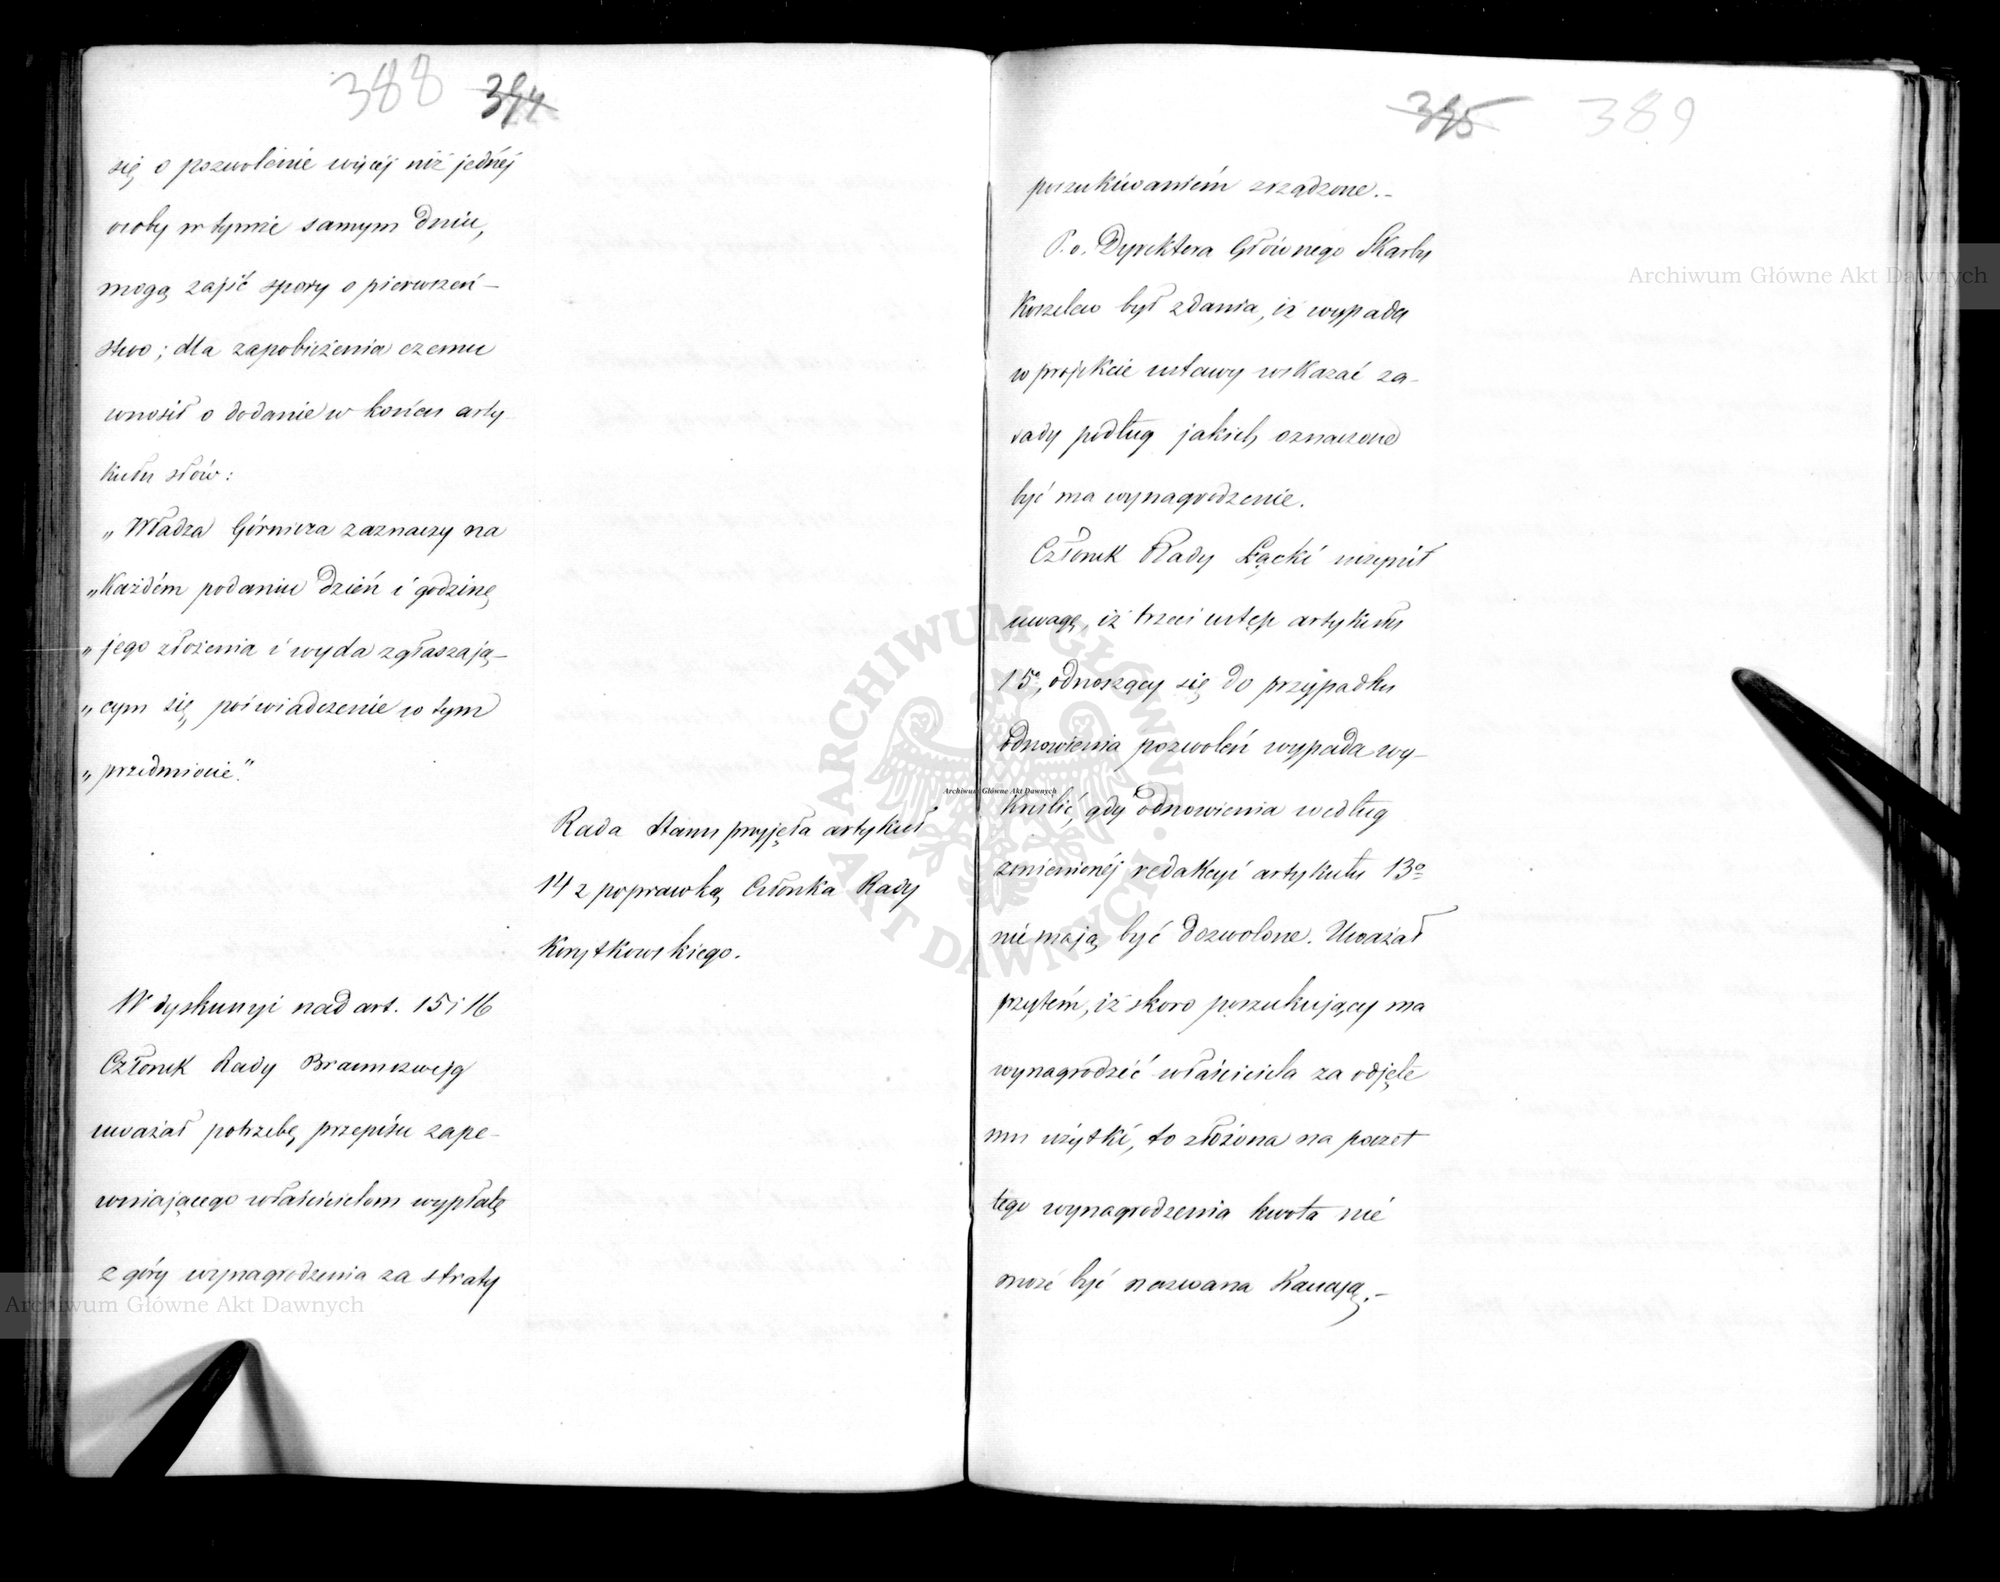 388 394
się o pozwolenie więcéj niż jednéj
osoby w tymże samym dniu,
mogą zajść spory o pierwszeń-
stwo; dla zapobieżenia czemu
wnosił o dodanie w końcu arty
kułu słów:
„Władza Górnicza zaznaczy na
„Każdém podaniu dzień i godzinę
„jego złożenia i wyda zgłaszają-
„cym się, poświadczenie w tym
„przedmiocie."
Rada Stanu przyjęła artykuł
14 z poprawką Członka Rady
Korytkowskiego.
W dyskussyi nad art. 15 i 16
Członek Rady Braunszwejg
uważał potrzebę przepisu zape-
wniającego właścicielom wypłatę
z góry wynagrodzenia za straty
395 389
poszukiwaniém zrządzone.-
P.o. Dyrektora Głównego Skarbu
Koszelew był zdania, iż wypada
w projekcie ustawy wskazać za-
sady podług jakich oznaczone
być ma wynagrodzenie.
Członek Rady Łącki uczynił
uwagę, iż trzeci ustęp artykułu
15º, odnoszący się do przypadku
odnowienia pozwoleń wypada wy-
kreślić, gdy odnowienia według
zmienionéj redakcyi artykułu 13º
nie mają być dozwolone. Uważał
przytém, iż skoro poszukujący ma
wynagrodzić właściciela za odjęte
mu użytki, to złożona na poczet
tego wynagrodzenia kwota nie
może być nazwana Kaucyą.-
Archiwum Główne Akt Dawnych
Archiwum Główne Akt Dawnych
Archiwum Główne Akt Dawnych
ARCHIWUM GŁÓWNE AKT DAWNYCH